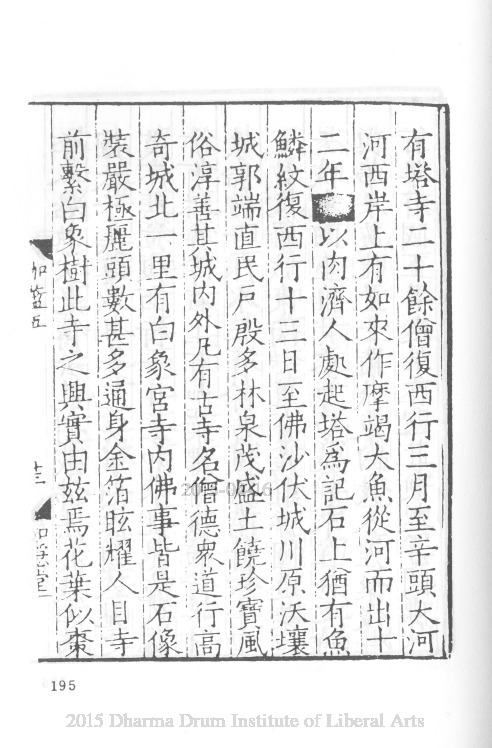 有塔寺二十餘僧復西行三月至辛頭大河
河西岸上有如來作摩竭大魚從河而出十
二年 以肉濟人處起塔為記石上猶有魚
鱗紋復西行十三日至佛沙伏城川原沃壤
城郭端直民戶殷多林泉茂盛土饒珍寶風
俗淳善其城內外凡有古寺名僧德眾道行高
奇城北一里有白象宮寺內佛事皆是石像
裝嚴極麗頭數甚多通身金箔眩耀人目寺
前繫白象樹此寺之興實由茲焉花葉似棗
加藍五
195
2015 Dharma Drum Institute of Liberal Arts